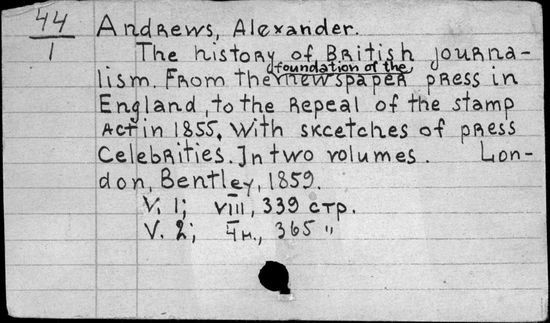 44
1
Andrews, Alexander.
The history of British journa-
foundation of the
lism. From the newspaper press in
England, to the Repeal of the stamp
Act in 1855, With skcetches of press
Celebrities. In two volumes. Lon-
don, Bentley, 1859.
V. 1; VIII, 339 стр.
V. 2; 365 "